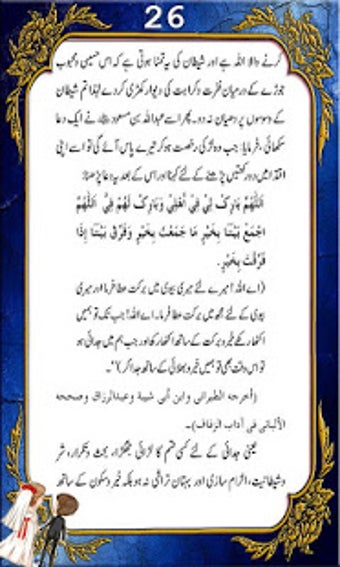 26
کرنے والا اللہ ہے اور شیطان کی یہ تمنا ہوتی ہے کہ اس حسین و محبوب
جوڑے کے درمیان نفرت و کراہت کی دیوار کھڑی کر دے لہٰذا تم شیطان
کے وسوسوں پر دھیان نہ دو۔ پھر اسے عبداللہ بن مسعود نے ایک دعا
سکھائی، فرمایا: جب وہ لڑکی رخصت ہو کر تیرے پاس آئے گی تو اسے اپنی
اقتدا میں دو رکعتیں پڑھنے کے لئے کہنا اور اس کے بعد یہ دعا پڑھنا:
اَللّٰهُمَّ بَارِكْ لِي فِي أَهْلِيْ وَبَارِكْ لَهُمْ فِيَّ اَللّٰهُمَّ
اجْمَعْ بَيْنَنَا بِخَيْرٍ مَا جَمَعْتَ بِخَيْرٍ وَفَرِّقْ بَيْنَنَا إِذَا
فَرَّقْتَ بِخَيْرٍ.
(اے اللہ! میرے لئے میری بیوی میں برکت عطا فرما اور میری
بیوی کے لئے مجھ میں برکت عطا فرما۔ اے اللہ! جب تک تو ہمیں
اکٹھا رکھے خیر و برکت کے ساتھ اکٹھا رکھ اور جب ہم میں جدائی ہو
تو اس وقت بھی تو ہمیں خیر و بھلائی کے ساتھ جدا کر)"۔
(أخرجه الطبراني وابن أبي شيبة وعبدالرزاق وصححه
الألباني في آداب الزفاف)۔
یعنی جدائی کے لئے کسی قسم کا لڑائی جھگڑا، بحث و تکرار، شر
و شیطانیت، الزام سازی اور بہتان تراشی نہ ہو بلکہ خیر و سکون کے ساتھ